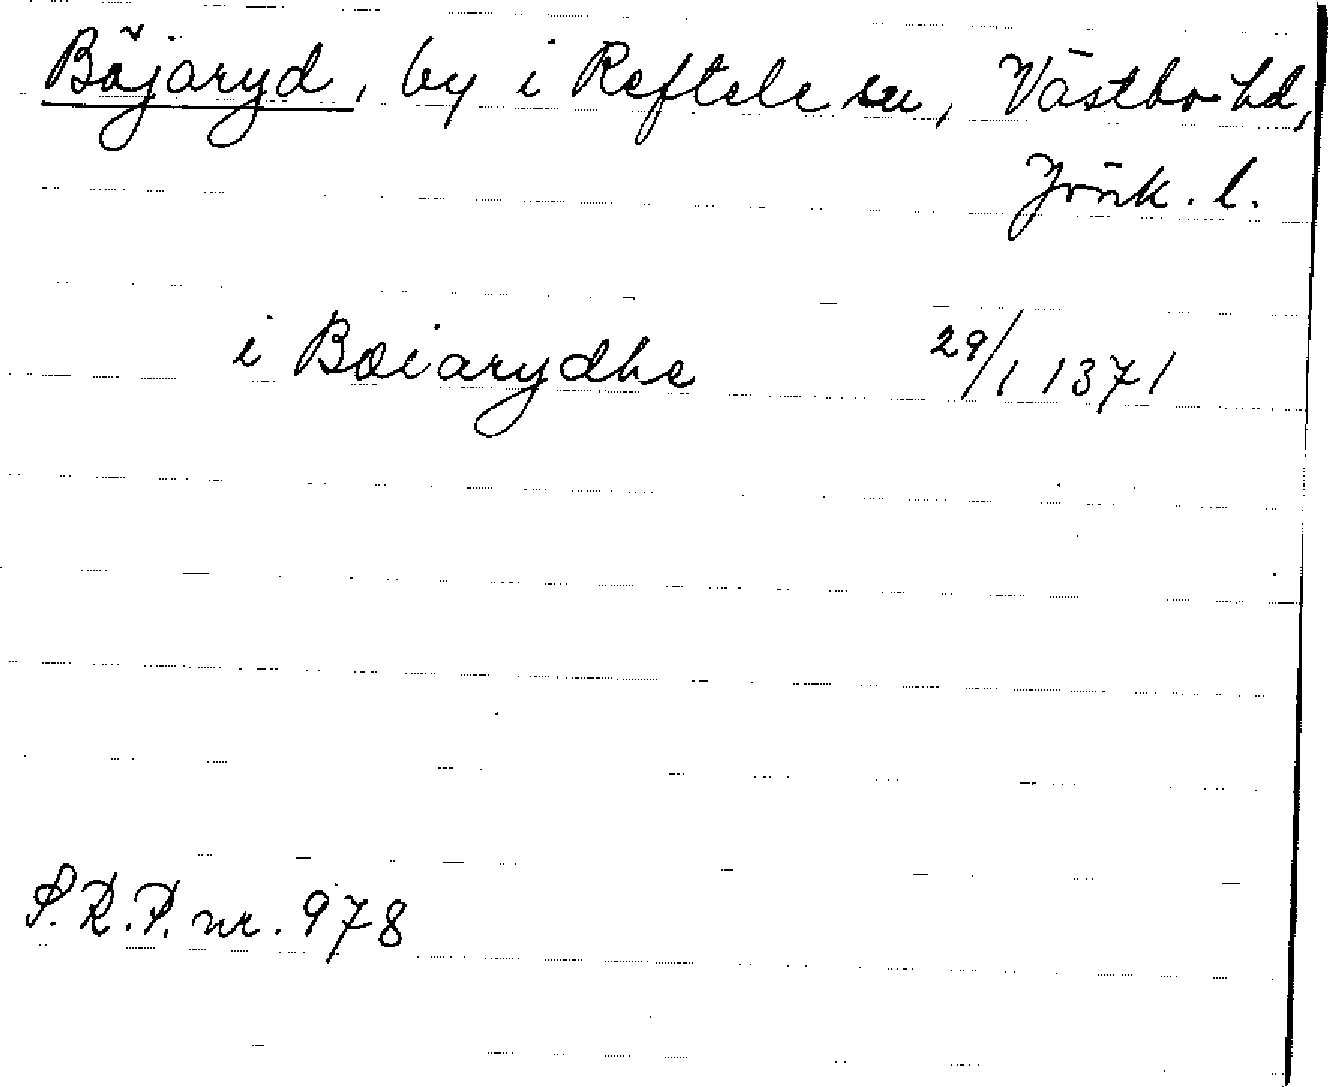 Böjaryd, by i Reftele sn, Västbo hd,
Jönk. l.
i Bøiarydhe 29/1 1371
S.R.P. nr. 978